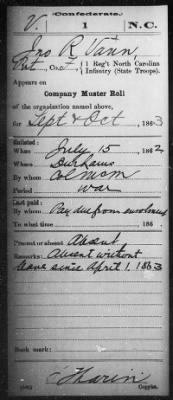 Confederate.
V. 1 N.C.
Jno R. Vann
Pvt, Co. 1 Reg't North Carolina
Infantry (State Troops).
Appears on
Company Muster Roll
of the organization named above,
for Sept & Oct, 1863
Enlisted:
When July 15, 1862
Where
By whom Col McM
Period war
Last paid:
By whom Pay due from enrolment
To what time , 186 .
Present or absent Absent
Remarks: Absent without
leave since April 1, 1863
Book mark:
Copyist.